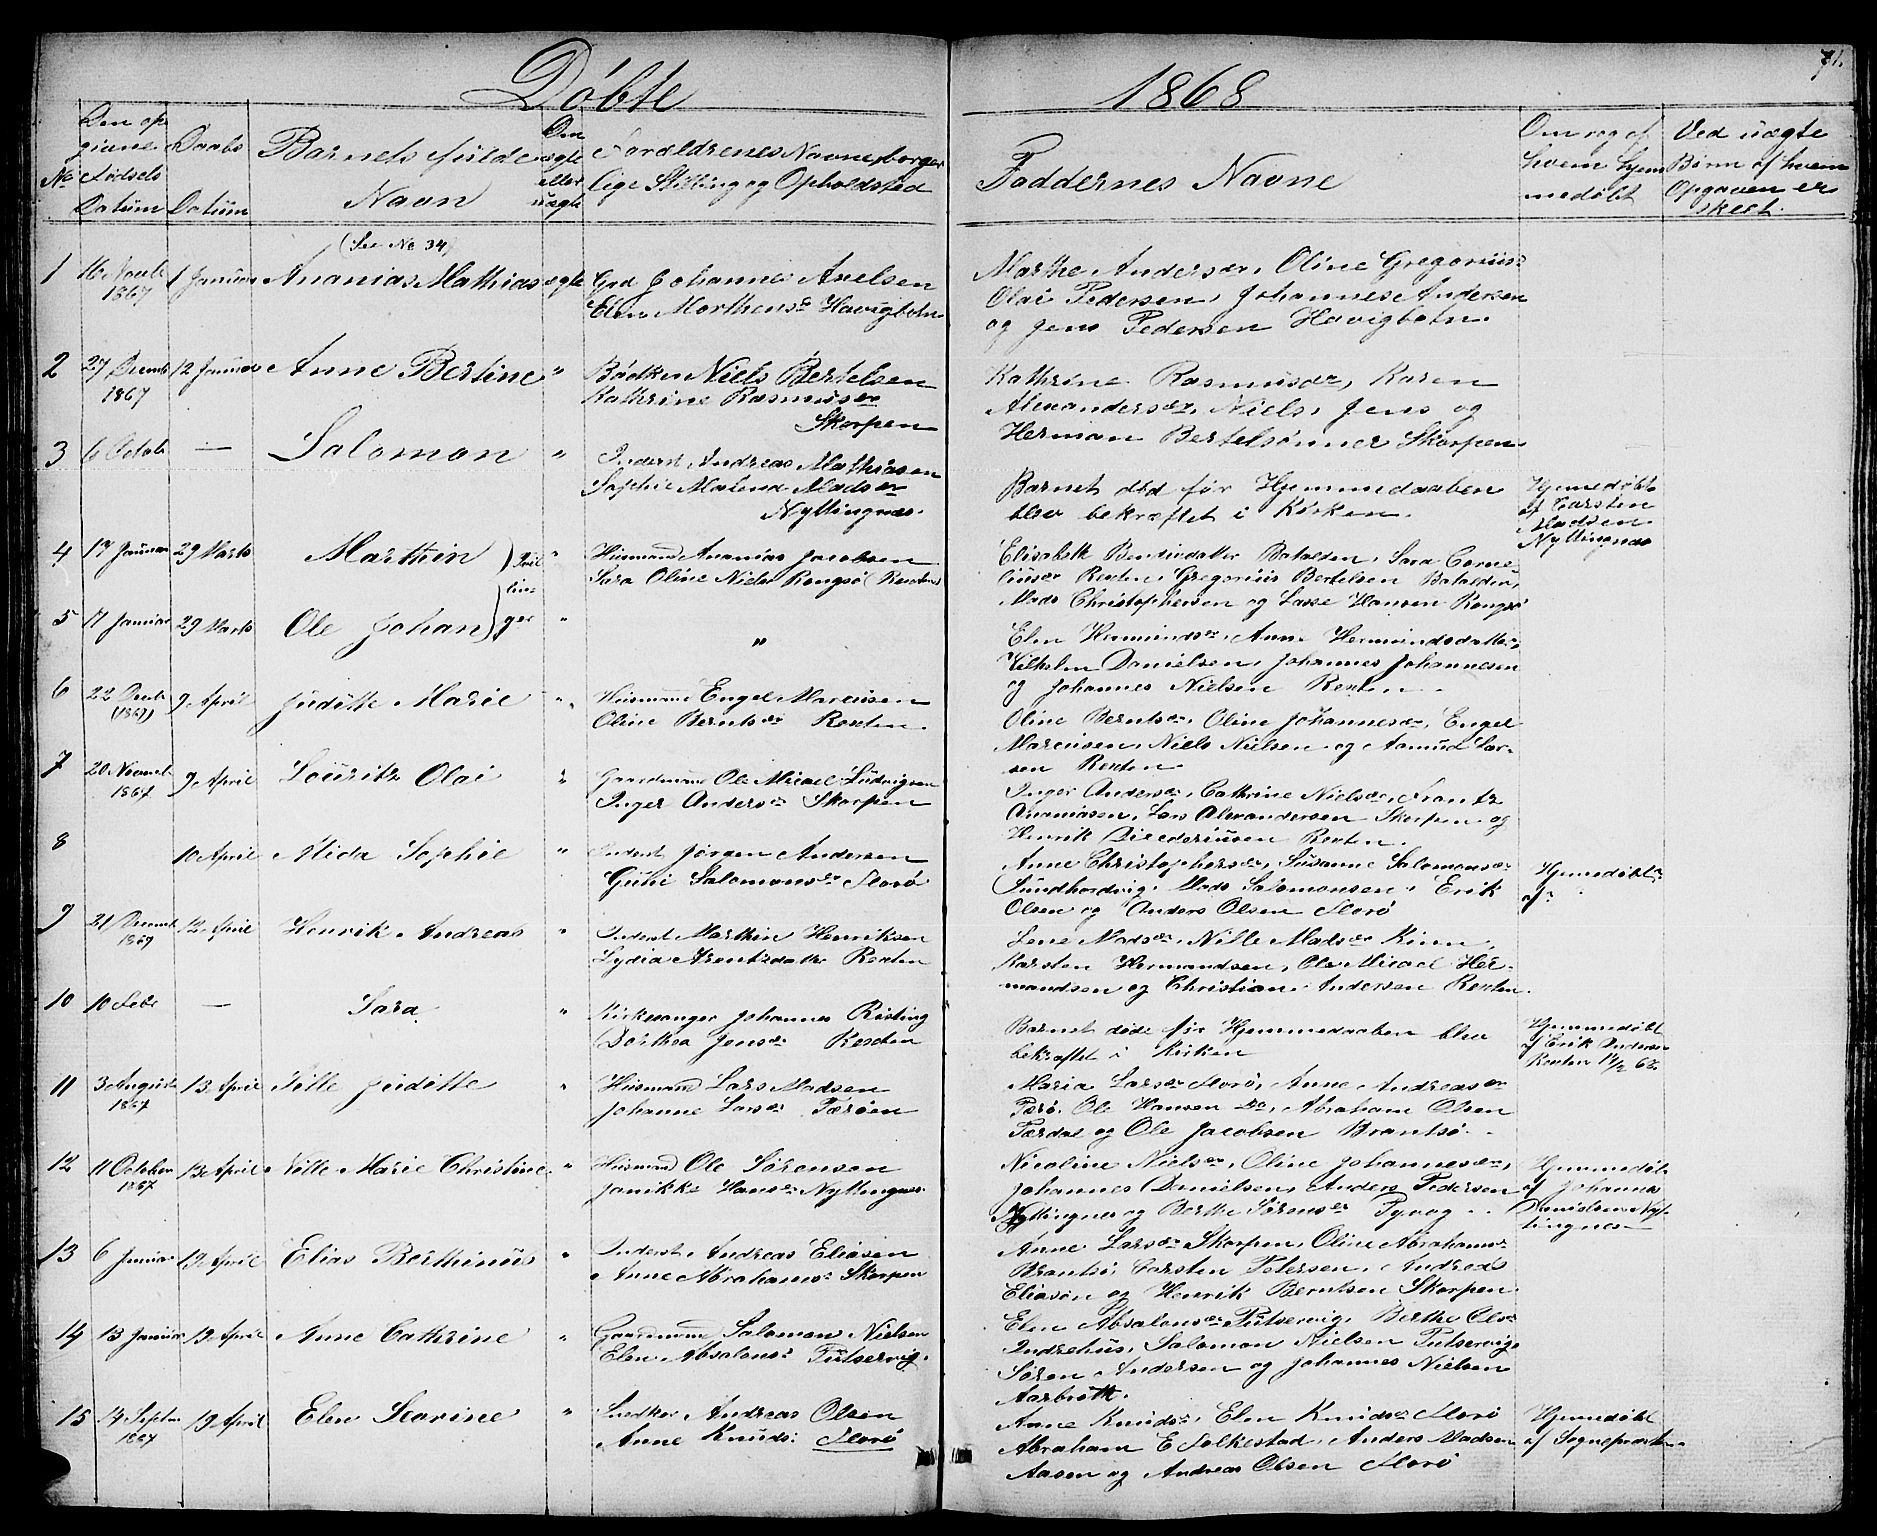 Døbte
1868
71.
No
Den op-
givne
Fødsels
Datum
Daabs
Datum
Barnets fulde
Navn
Om
ægte
eller
uægte
Forældrenes Navne, borger
lige Stilling og Opholdsted
Faddernes Navne
Om og af
hvem hjem
medøbt
Ved uægte
Børn af hvem
Opgaven er
skeet.
(See No 34)
1 16 Novb 1867 1 Januar Ananias Mathias ægte
Grd Johannes Axelsen
Elen Morthensdr Havigbotn
Marthe Andersdr, Oline Gregorius-
Olai Pedersen, Johannes Andersen
og Jens Pedersen Havigbotn.
2 27 Decemb 1867 12 Januar Anne Bertine "
Bødker Niels Bertelsen
Kathrine Rasmusdr
Skorpen
Kathrine Rasmusdr, Karen
Alexandersdr, Niels, Jens og
Herman Bertelsønner Skorpen.
3 6 Octob — Salomon "
Inderst Andreas Mathiasen
Sophie Malena Madsdr
Nyttingnæs.
Barnet død før Hjemmedaaben
blev bekræftet i Kirken.
Hjemmedøbt
af Carsten
Madsen
Nyttingnæs
4 17 Januar 29 Marts Marthin "
Husmand Ananias Jacobsen
Sara Oline Niels Rongsø (Rexten)
Elisabeth Bendixdatter Batalden, Sara Corne-
liusdr Rexten, Gregorius Bertelsen Batalden,
Mads Christophersen og Lasse Hansen Rongsø
Tvil-
lin-
ger
5 17 Januar 29 Marts Ole Johan "
"
Elen Hermundsdr, Anne Hermundsdatter,
Vilhelm Danielsen, Johannes Johannesen
og Johannes Nielsen Rexten.
6 22 Decb (1867) 9 April Juditte Marie "
Husmand Engel Marcusen
Oline Berntsdr Rexten.
Oline Berntsdr, Oline Johannesdr, Engel
Marcusen, Niels Nielsen og Asmud Lar-
sen Rexten.
7 20 Novemb 1867 9 April Louritz Olai "
Gaardmand Ole Micael Ludvigsen
Inger Andersdr Skorpen
Inger Andersdr, Cathrine Nielsdr, Frantz
Ananiasen, Lars Alexandersen Skorpen og
Henrik Diederiksen Rexten.
8 10 April Sophie "
Inderst Jørgen Andersen
Guhi Salomonsdr Florø
Anne Christophersdr, Susanne Salomonsdr
Sundhordvig, Mads Salomonsen, Erik
Olsen og Anders Olsen Florø
Hjemmedøbt
af
9 21 Decemb 1867 12 April Henrik Andreas "
Inderst Marthin Henriksen
Lydia Arentzdatter Rexten
Lene Madsdr, Nille Madsdr Kinn,
Karsten Hermandsen, Ole Micael Her-
mandsen og Christian Andersen Rexten.
10 10 Febr — Sara "
Kirkesanger Johannes Risting
Dorthea Jensdr Rexten
Barnet døde før Hjemmedaaben blev
bekræftet i Kirken
Hjemmedøbt
af Erik Andersen
Rexten 14/2 68.
11 3 August 1867 13 April Sille Juditte "
Husmand Lars Madsen
Johanne Larsdr Færøen
Maria Larsdr Florø, Anne Andreasdr
Færø, Ole Hansen do, Abraham Olsen
Færdal og Ole Jacobsen Brantsø.
12 11 October 1867 13 April Sille Marie Christine "
Husmand Ole Sørensen
Janikke Hansdr Nyttingnæs.
Nicoline Nielsdr, Oline Johannesdr,
Johannes Danielsen, Anders Pedersen
Nyttingnes og Berthe Sørensdr
Hjemmedøbt
af Johannes
Danielsen Nyt-
tingnæs
13 6 Januar 19 April Elias Berthinus "
Inderst Andreas Eliasen
Anne Abrahamsdr Skorpen
Anne Larsdr Skorpen, Oline Abrahams-
Brantsø, Carsten Petersen, Andreas
Eliasøn og Henrik Berntsen Skorpen.
14 13 Januar 19 April Anne Cathrine "
Gaardmand Salomon Nielsen
Elen Absalonsdr
Elen Absalonsdr Berthe Olsdr
Indrehus, Salomon Nielsen
Søren Andersen og Johannes Nielsen
Aarbrøtt.
15 14 Septbr 1867 19 April Elen Severine "
Snedker Andreas Olsen
Anne Knudsd: Florø
Anne Knudsdr, Elen Knudsdr Florø
Abraham E Folkestad, Anders Madsen
Aasen og Andreas Olsen Florø
Hjemmedøbt
af Sognepræsten